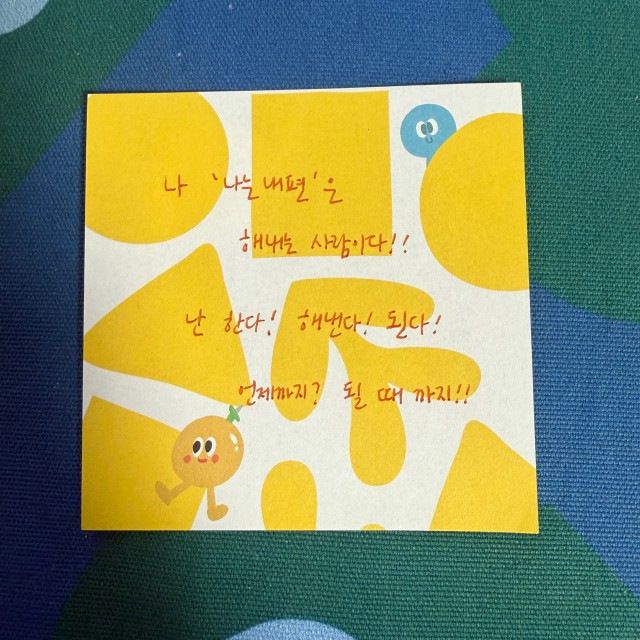 나 '나는 내편'은
해내는 사람이다!!
난 한다! 해낸다! 된다!
언제까지? 될 때 까지!!